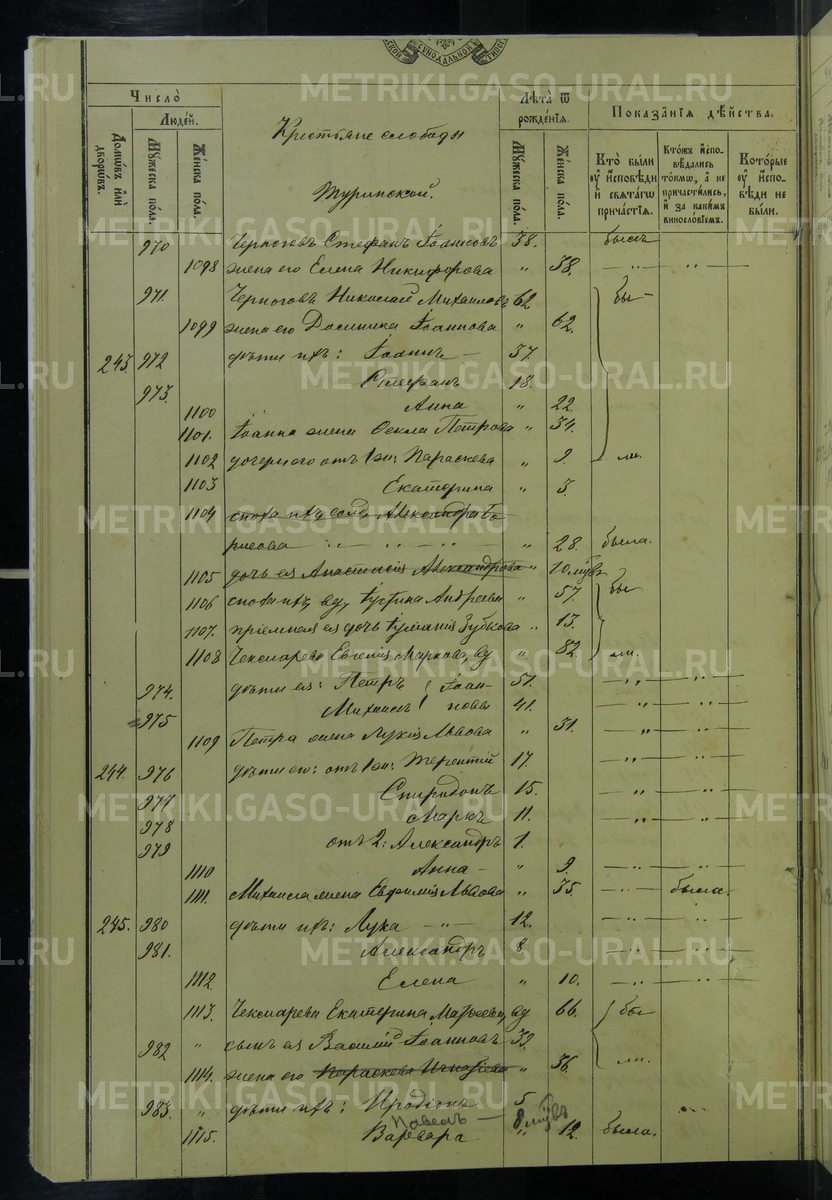 Число̀
Людей.
Домѡвъ и҆лѝ дворѡвъ.
Мꙋжеска пола.
Женска пола.
Лѣта ѿ рожденїѧ.
Мꙋжеска пола.
Женска пола.
Показанїѧ дѣйства.
Кто̀ были оу҆ и҆сповѣди и҆ свѧтагѡ причастїѧ.
Ктожъ и҆сповѣдались токмѡ, а҆ не причастились, и҆ за какимъ винословїемъ.
Которые оу҆ и҆сповѣди не были.
Крестьяне слободы
Туринской.
970 Черноговъ Стефанъ Іоанновъ 38. былъ
1098 жена его Елена Никифорова " 38. — " — " —
971. Черноговъ Николай Михаиловъ 62 бы-
1099 жена его Домника Іоаннова " 62.
243. 972 дѣти ихъ: Іоаннъ — 37.
973. Стефанъ 18.
1100 Анна " 22.
1101. Іоанна жена Фекла Петрова " 34.
1102 дочери его отъ 1 ж: Параскева " 9. ли.
1103 Екатерина " 5.
1104 сноха ихъ солд. Александра Бо-
рисова " 28. была.
1105 дочь ея Анастасія Александрова " 10 мѣс.
1106 сноха ихъ вд. Іустина Андреева " 57. бы
1107. пріемная ея дочь Іуліанія Зубкова " 13.
1108 Чекмарева Евгенія Маркова, вд " 82. ли.
974. дѣти ея: Петръ Іоан- 51. — " — " —
975 Михаилъ новы 41. — " — " —
1109 Петра жена Лукія Львова " 31. — " — " —
244. 976 дѣти его: отъ 1 ж: Терентій 17. — " — " —
977 Спиридонъ 15. — " — " —
978 Маркъ 11. — " — " —
979 отъ 2: Александръ 1.
1110 Анна — " 9. — " — " —
1111. Михаила жена Евфимія Львова " 35. — " — была.
245. 980 дѣти ихъ: Лука — " — 12. — " — " —
981. Александръ 8. — " — " —
1112 Елена " 10. — " — " —
1113. Чекмарева Екатерина Матѳеева, вд 66. бы
982 " сынъ ея Василій Іоанновъ 39.
1114. жена его Параскева Игнатіева " 36. ли.
983. " дѣти ихъ: Иродіонъ 5
Павелъ — 8 мѣс
1115. Варвара " 12. была.
METRIKI.GASO-URAL.RU